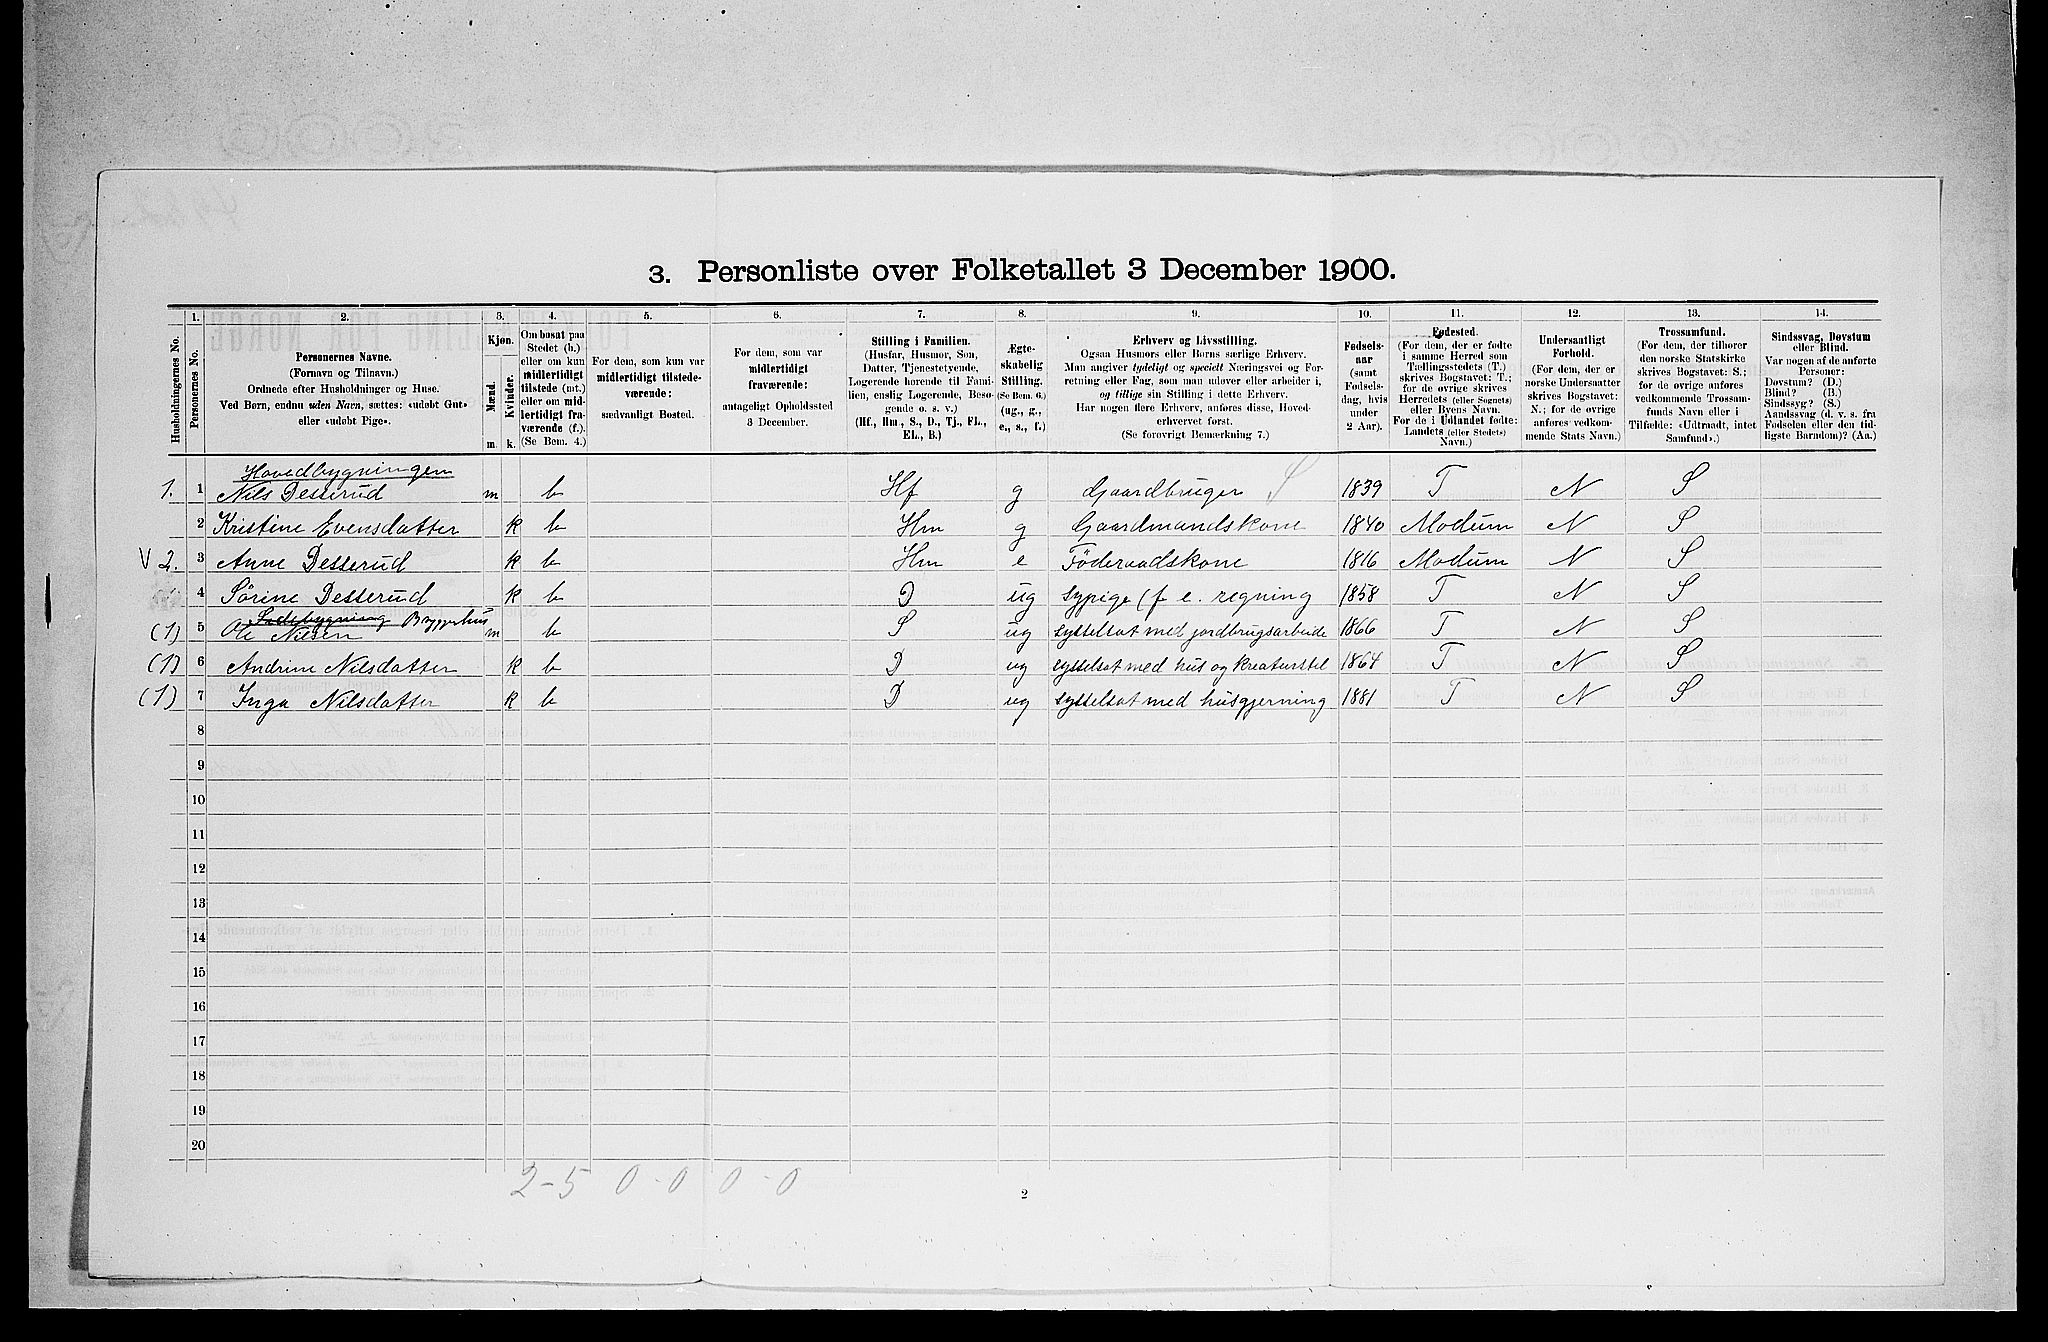 3. Personliste over Folketallet 3 December 1900.
Husholdningernes No.
1.
Personernes No.
2.
Personernes Navne.
(Fornavn og Tilnavn.)
Ordnede efter Husholdninger og Huse.
Ved Børn, endnu uden Navn, sættes: «udøbt Gut»
eller «udøbt Pige».
3.
Kjøn.
Mænd.
Kvinder.
m.
k.
4.
Om bosat paa
Stedet (b.)
eller om kun
midlertidigt
tilstede (mt.)
eller om mid-
lertidigt fra-
værende (f.).
(Se Bem. 4.)
5.
For dem, som kun var
midlertidigt tilstede-
værende:
sædvanligt Bosted.
6.
For dem, som var
midlertidigt
fraværende:
antageligt Opholdssted
3 December.
7.
Stilling i Familien.
(Husfar, Husmor, Søn,
Datter, Tjenestetyende,
Logerende hørende til Fami-
lien, enslig Logerende, Besø-
gende o. s. v.)
(Hf., Hm., S., D., Tj., FL.,
EL., B.)
8.
Ægte-
skabelig
Stilling.
(Se Bem. 6.)
(ug., g.,
e., s., f.)
9.
Erhverv og Livsstilling.
Ogsaa Husmors eller Børns særlige Erhverv.
Man angiver tydeligt og specielt Næringsvei og For-
retning eller Fag, som man udøver eller arbeider i,
og tillige sin Stilling i dette Erhverv.
Har nogen flere Erhverv, anføres disse, Hoved-
erhvervet først.
(Se forøvrigt Bemærkning 7.)
10.
Fødsels-
aar
(samt
Fødsels-
dag, hvis
under
2 Aar).
11.
Fødested.
(For dem, der er fødte
i samme Herred som
Tællingsstedets (T.)
skrives Bogstavet: T.;
for de øvrige skrives
Herredets (eller Sognets)
eller Byens Navn.
For de i Udlandet fødte:
Landets (eller Stedets)
Navn.)
12.
Undersaatligt
Forhold.
(For dem, der er
norske Undersaatter
skrives Bogstavet:
N.; for de øvrige
anføres vedkom-
mende Stats Navn.)
13.
Trossamfund.
(For dem, der tilhører
den norske Statskirke
skrives Bogstavet: S.;
for de øvrige anføres
vedkommende Trossam-
funds Navn eller i
Tilfælde: «Udtraadt, intet
Samfund».)
14.
Sindssvag, Døvstum
eller Blind.
Var nogen af de anførte
Personer:
Døvstum? (D.)
Blind? (B.)
Sindssyg? (S.)
Aandssvag (d. v. s. fra
Fødselen eller den tid-
ligste Barndom)? (Aa.)
Hovedbygningen
1. 1 Nils Desserud m b Hf g Gaardbruger S 1839 T N S
2 Kristine Evensdatter k b Hm g Gaardmandskone 1840 Modum N S
V 2. 3 Anne Desserud k b Hm e Föderaadskone 1816 Modum N S
4 Sörine Desserud k b D ug sypige (f e. regning 1858 T N S
Sidebygning Bryggerhus
(1) 5 Ole Nilsen m b S ug sysselsat med jordbrugsarbeide 1866 T N S
(1) 6 Andrine Nilsdatter k b D ug sysselsat med hus og kreaturstel 1864 T N S
(1) 7 Inga Nilsdatter k b D ug sysselsat med husgjerning 1881 T N S
8
9
10
11
12
13
14
15
16
17
18
19
20
2-5 0-0 0-0
2